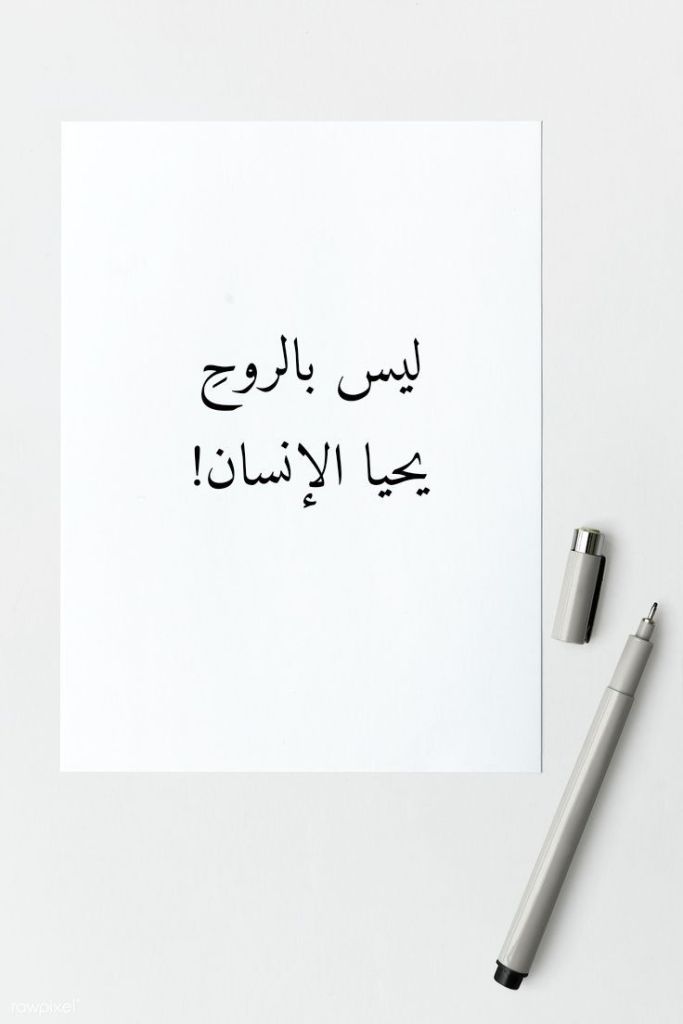 ليس بالروحِ
يحيا الإنسان!
rawpixel